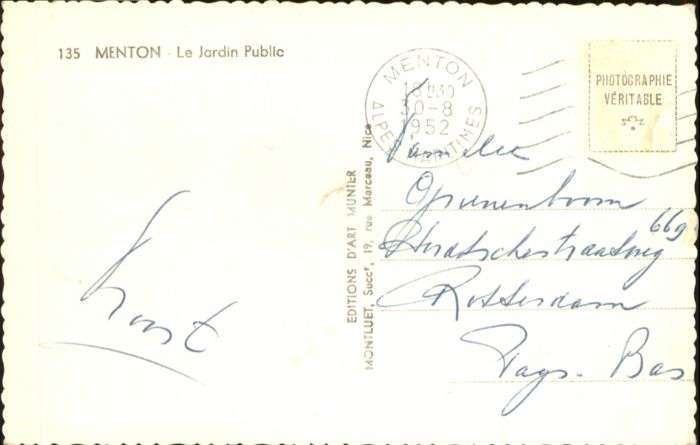 135 MENTON - Le Jardin Public
MENTON
18H30
30-8
1952
ALPES MARITIMES
PHOTOGRAPHIE
VÉRITABLE
EDITIONS D'ART MUNIER
MONTLUET, Succr, 19, rue Marceau, Nice
Familie
669
Rotterdam
Pays-Bas